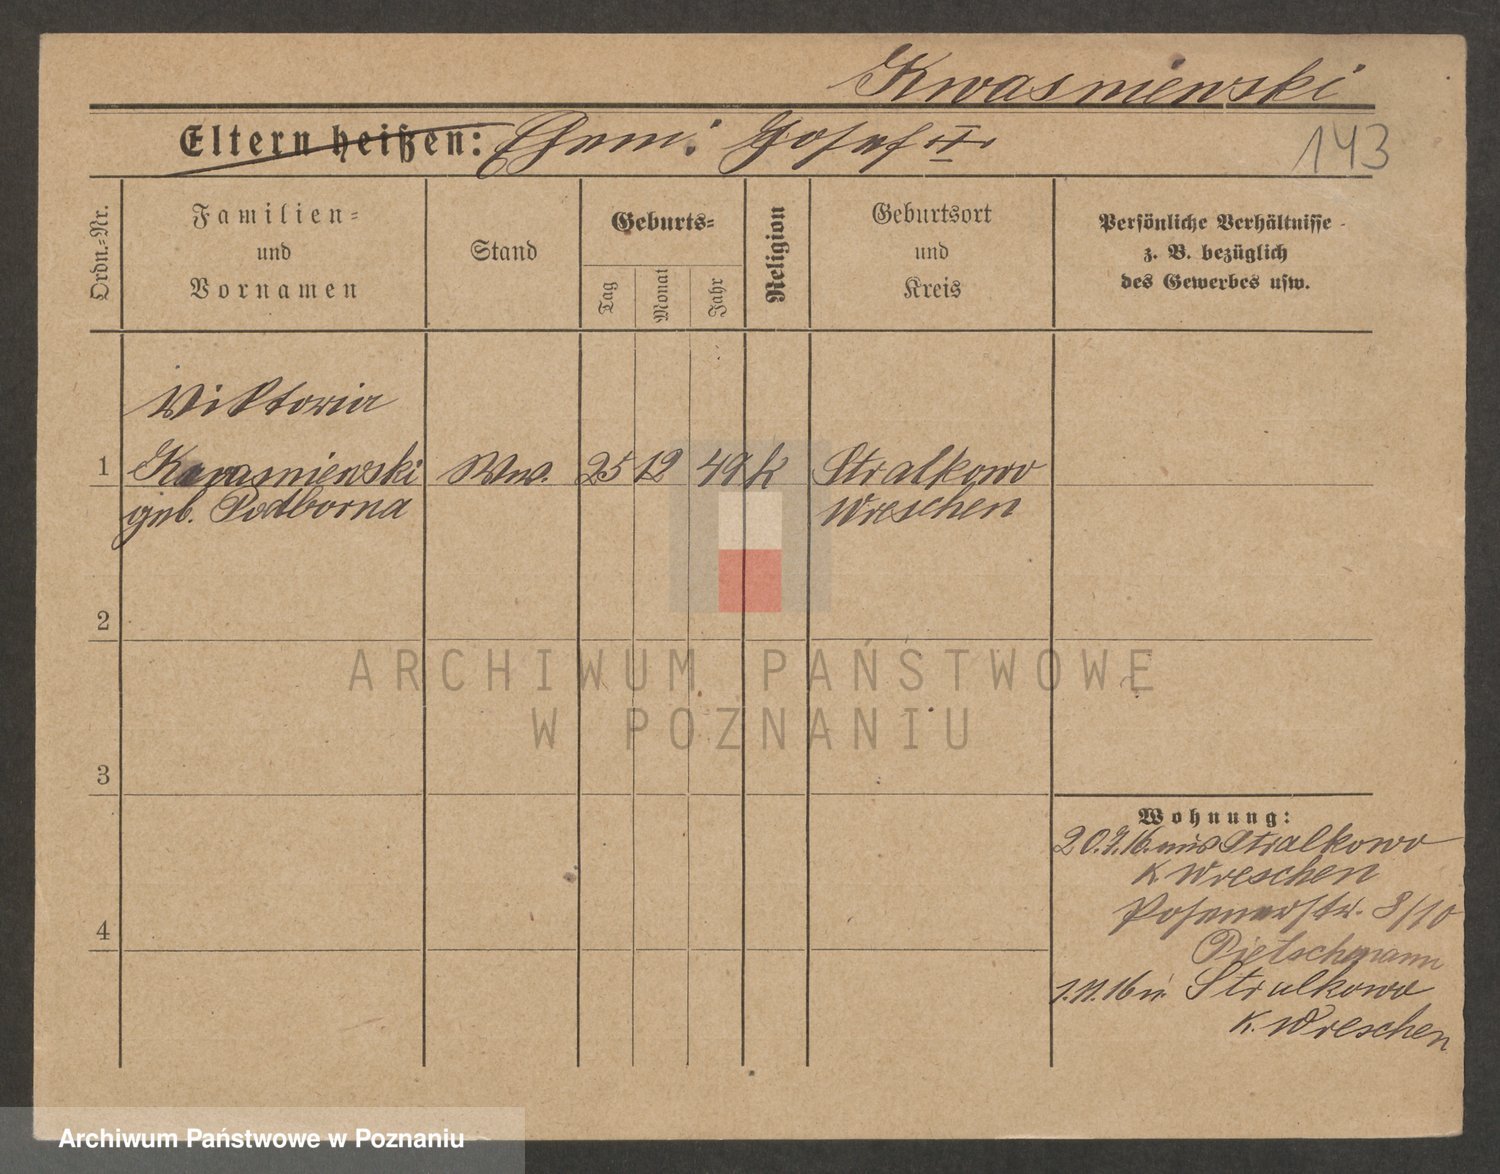 Kwasniewski
Eltern heißen: Ehem: Josef †
143
Ordn.-Nr.
Familien-
und
Vornamen
Stand
Geburts-
Tag
Monat
Jahr
Religion
Geburtsort
und
Kreis
Persönliche Verhältnisse
z. B. bezüglich
des Gewerbes usw.
Viktoria
1 Kwasniewski Ww. 25 12 49 k Stralkowo
geb. Podborna Wreschen
2
3
4
Wohnung:
20.9.16. aus Stralkowo
K Wreschen
Posenerstr. 8/10
Pietschmann
1.11.16 n. Stralkowo
K. Wreschen
ARCHIWUM PAŃSTWOWE
W POZNANIU
Archiwum Państwowe w Poznaniu